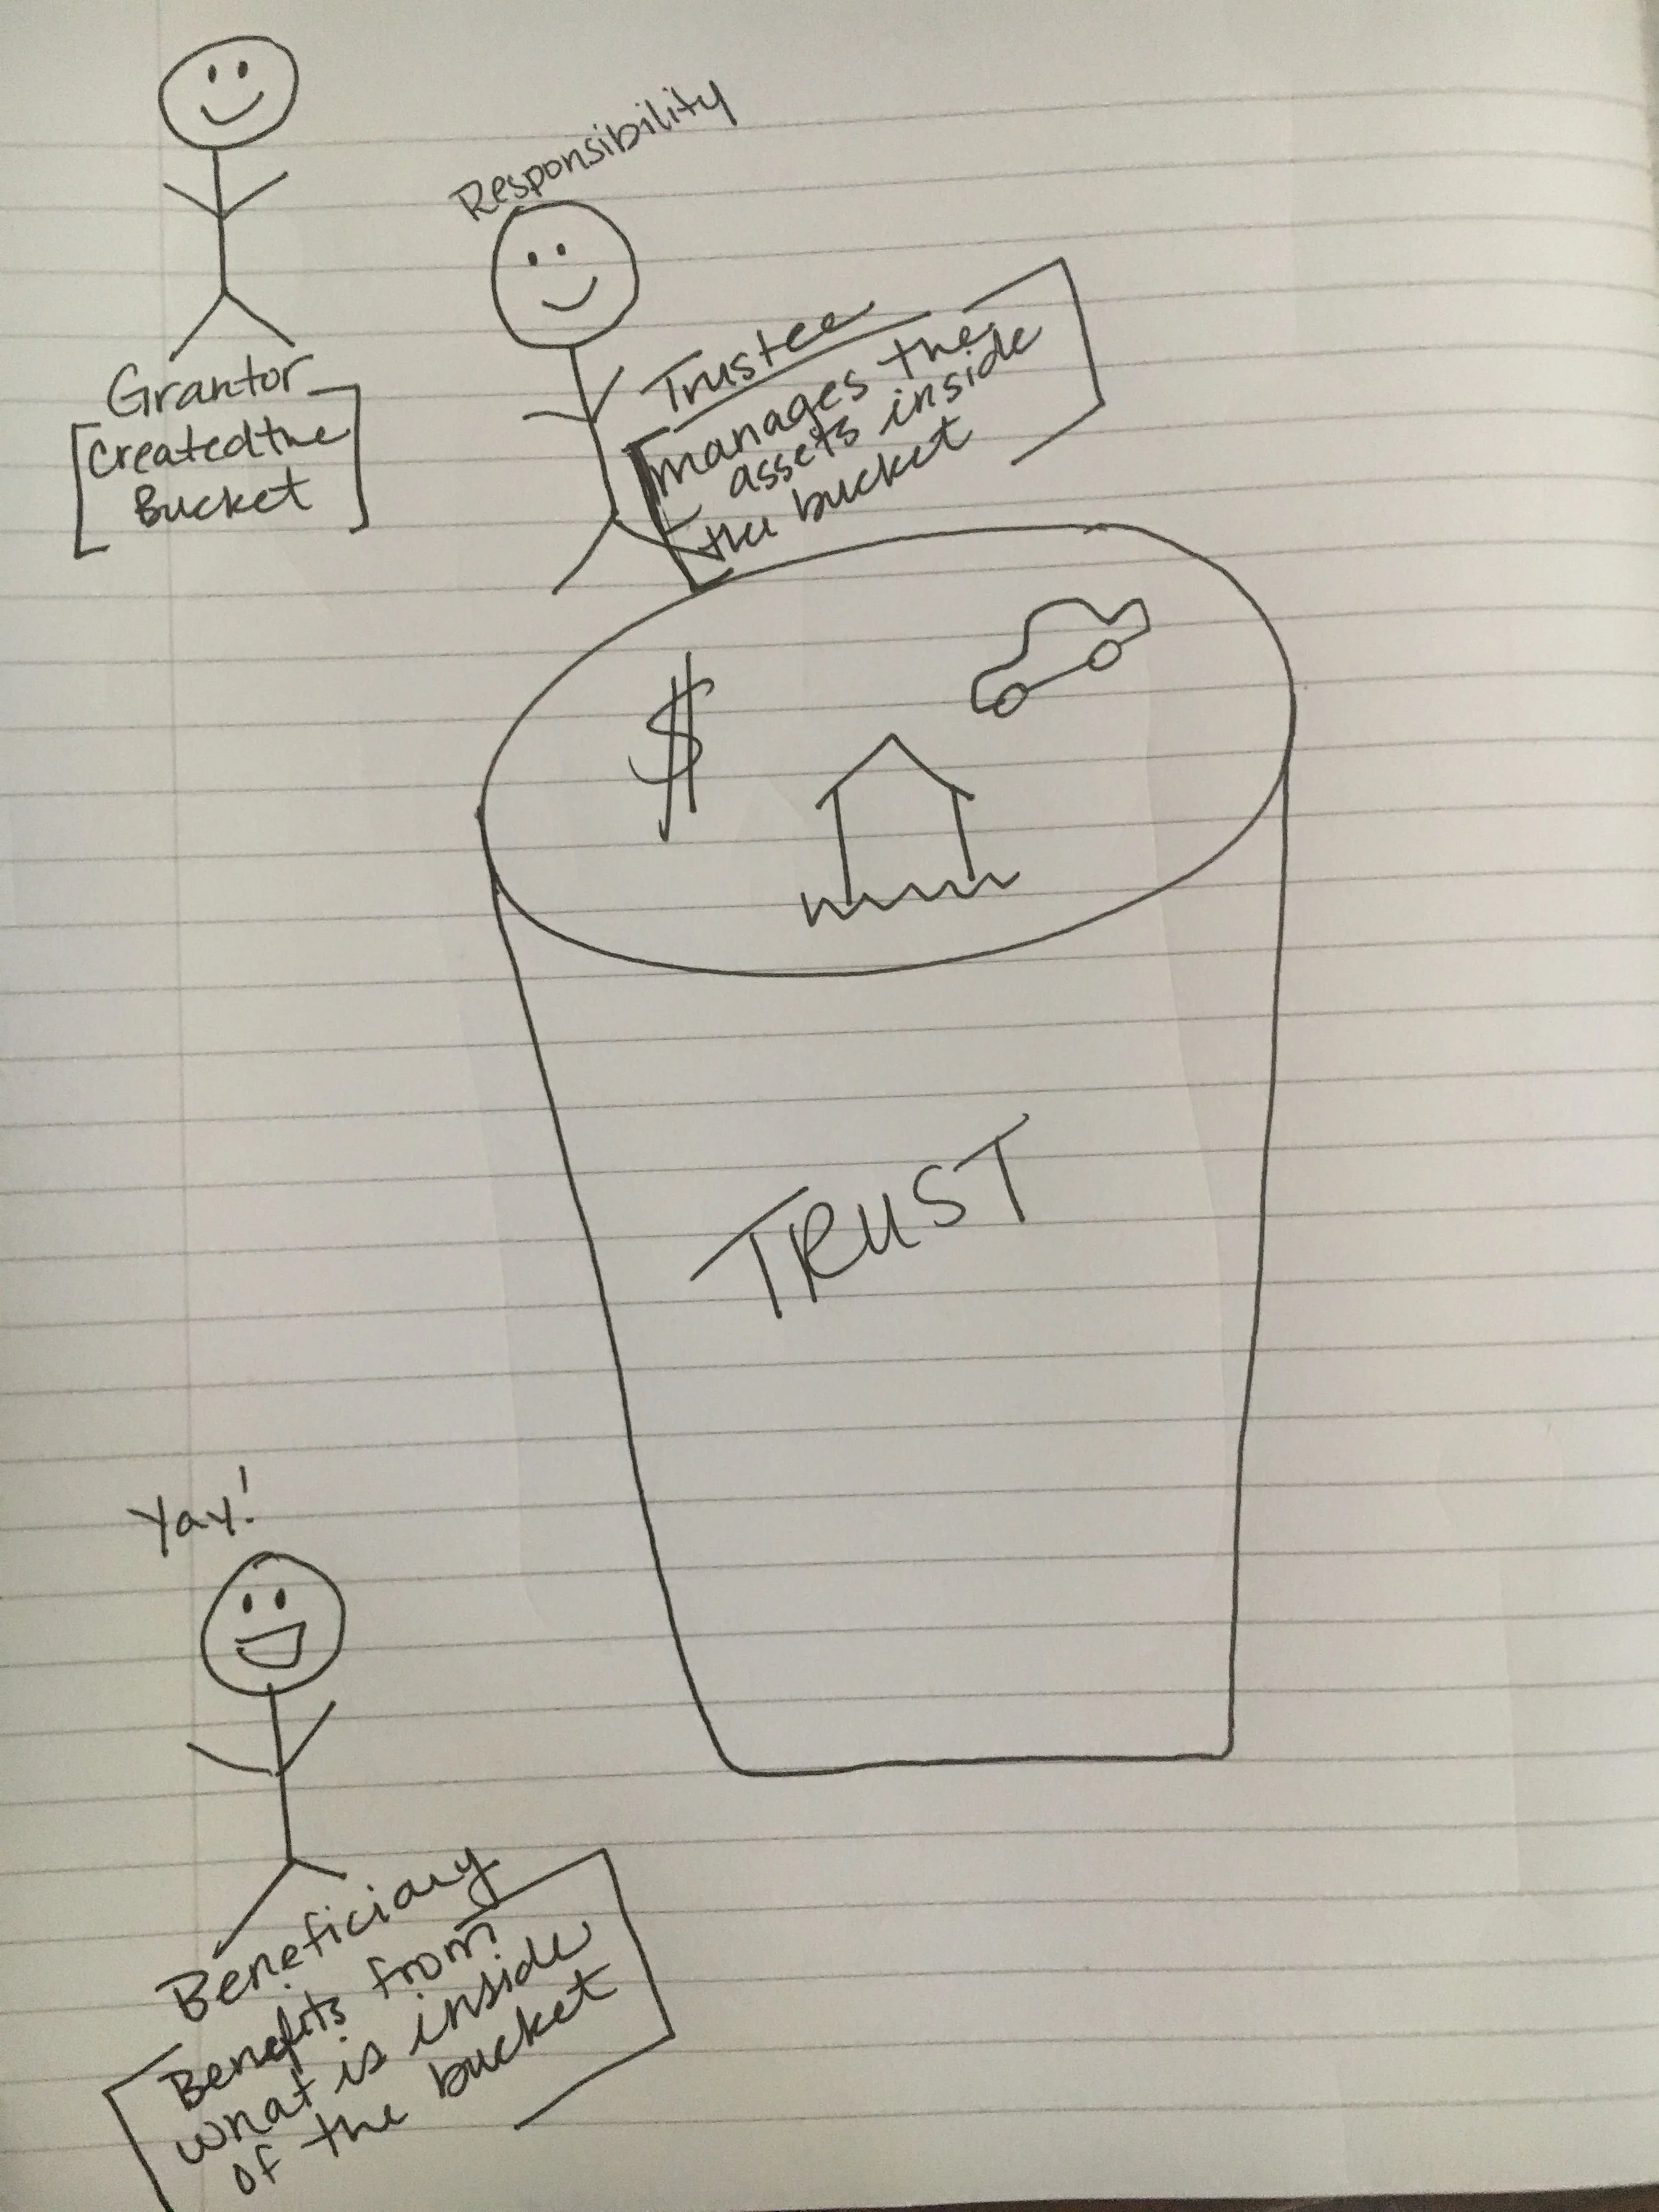 Responsibility
Grantor
[Created the
Bucket]
Trustee
[manages the
assets inside
the bucket]
$
TRUST
Yay!
Beneficiary
[Benefits from
what is inside
of the bucket]